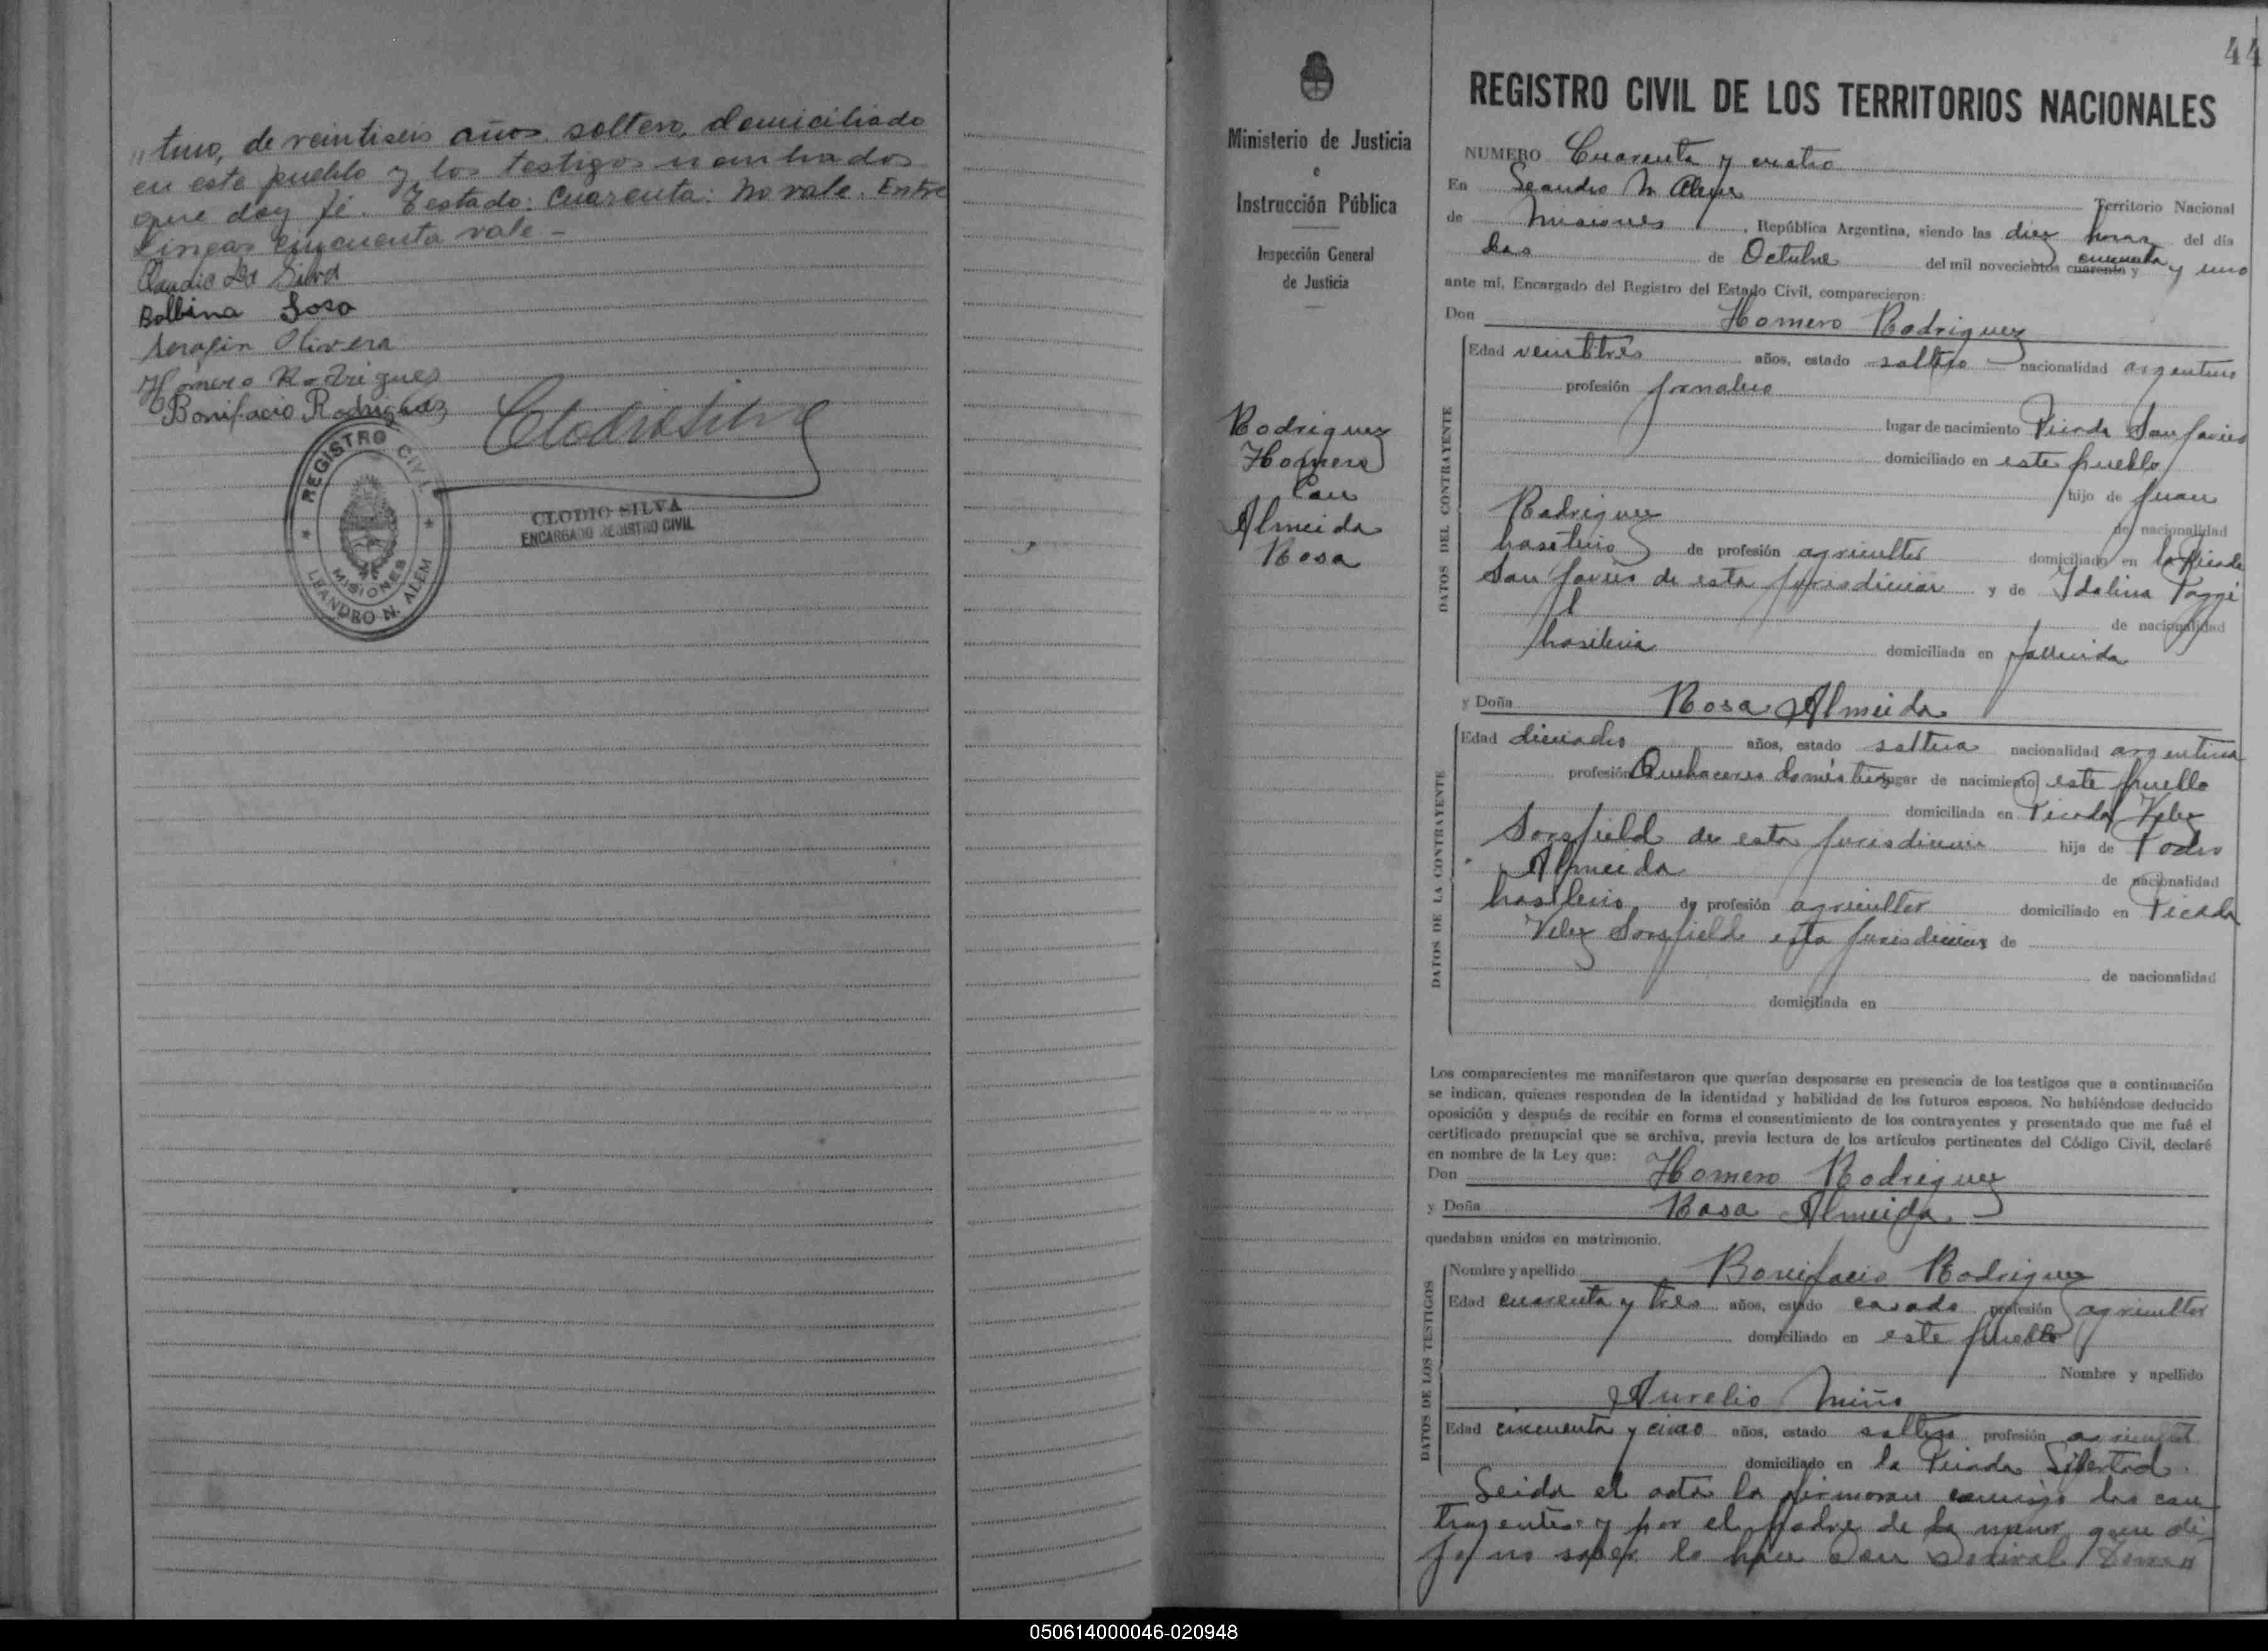 " tino, de veintiseis años, soltero, domiciliado
en este pueblo y los testigos nombrados
que doy fé. Testado: cuarenta: No vale. Entre
lineas cincuenta vale -
Claudio Da Silva
Balbina Sosa
Serafin Olivera
Homero Rodrigues
Bonifacio Rodriguez
Clodio Silva
REGISTRO CIVIL
MISIONES
LEANDRO N. ALEM
CLODIO SILVA
ENCARGADO REGISTRO CIVIL
44
Ministerio de Justicia
e
Instrucción Pública
Inspección General
de Justicia
Rodriguez
Homero
Con
Almeida
Rosa
REGISTRO CIVIL DE LOS TERRITORIOS NACIONALES
NUMERO Cuarenta y cuatro
En Leandro N. Alem Territorio Nacional
de Misiones, República Argentina, siendo las diez horas del día
dos de Octubre del mil novecientos cuarenta y cincuenta y uno
ante mí, Encargado del Registro del Estado Civil, comparecieron:
Don Homero Rodriguez
DATOS DEL CONTRAYENTE
Edad veintitres años, estado soltero nacionalidad argentino
profesión jornalero
lugar de nacimiento Picada San Javier
domiciliado en este pueblo
hijo de Juan
Rodriguez de nacionalidad
brasilero de profesión agricultor domiciliado en la Picada
San Javier de esta jurisdiccion y de Idalina
de nacionalidad
brasilera domiciliada en fallecida
y Doña Rosa Almeida
DATOS DE LA CONTRAYENTE
Edad dieciocho años, estado soltera nacionalidad argentina
profesión Quehaceres domésticos lugar de nacimiento este pueblo
domiciliada en Picada Velez
Sarsfield de esta jurisdiccion hija de Pedro
Almeida de nacionalidad
brasilero de profesión agricultor domiciliado en Picada
Velez Sarsfield esta jurisdiccion y de
de nacionalidad
domiciliada en
Los comparecientes me manifestaron que querían desposarse en presencia de los testigos que a continuación
se indican, quienes responden de la identidad y habilidad de los futuros esposos. No habiéndose deducido
oposición y después de recibir en forma el consentimiento de los contrayentes y presentado que me fué el
certificado prenupcial que se archiva, previa lectura de los artículos pertinentes del Código Civil, declaré
en nombre de la Ley que:
Don Homero Rodriguez
y Doña Rosa Almeida
quedaban unidos en matrimonio.
DATOS DE LOS TESTIGOS
Nombre y apellido Bonifacio Rodriguez
Edad cuarenta y tres años, estado casado profesión agricultor
domiciliado en este pueblo
Nombre y apellido
Aurelio Miño
Edad cincuenta y cinco años, estado soltero profesión agricult
domiciliado en la Picada Libertad.
Leida el acta la firmaron conmigo los con-
trayentes y por el padre de la menor que di-
jo no saber lo hace Don
050614000046-020948